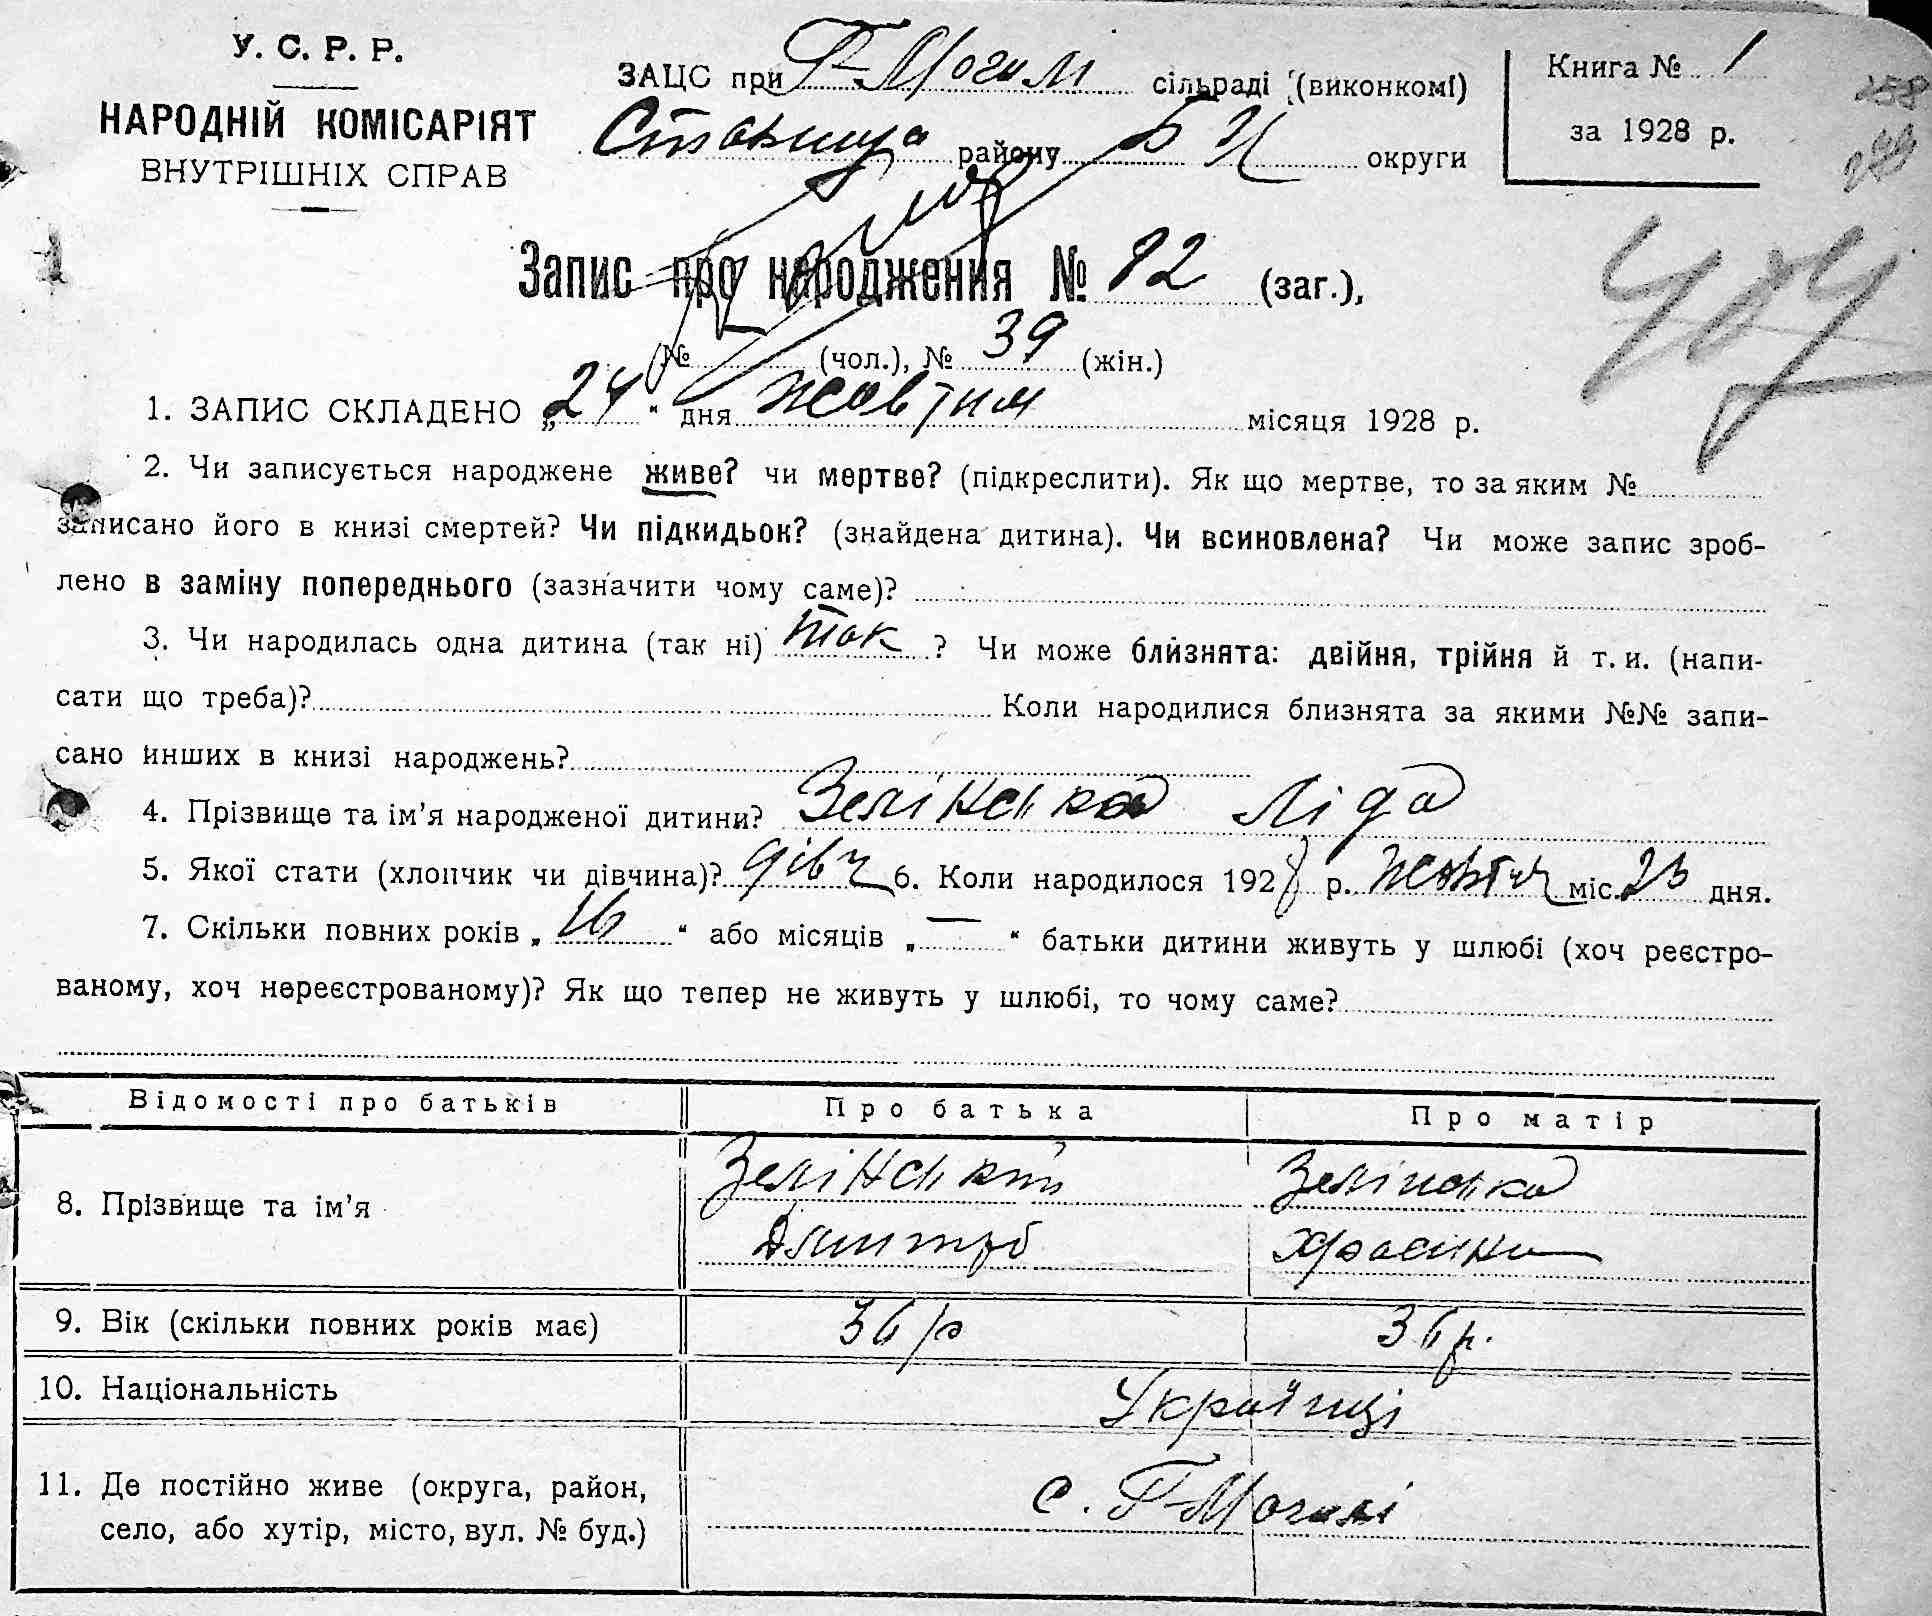 У. С. Р. Р.
НАРОДНІЙ КОМІСАРІЯТ
ВНУТРІШНІХ СПРАВ
ЗАЦС при Г-Могилі сільраді (виконкомі)
Ставища району Б Ц округи
Книга № 1
за 1928 р.
Запис про народження № 82 (заг.),
№ (чол.), № 39 (жін.)
1. ЗАПИС СКЛАДЕНО „24“ дня жовтня місяця 1928 р.
2. Чи записується народжене живе? чи мертве? (підкреслити). Як що мертве, то за яким №
записано його в книзі смертей? Чи підкидьок? (знайдена дитина). Чи всиновлена? Чи може запис зроб-
лено в заміну попереднього (зазначити чому саме)?
3. Чи народилась одна дитина (так ні) так ? Чи може близнята: двійня, трійня й т. и. (напи-
сати що треба)? Коли народилися близнята за якими №№ запи-
сано инших в книзі народжень?
4. Прізвище та ім’я народженої дитини? Зелінська Ліда
5. Якої стати (хлопчик чи дівчина)? дівч 6. Коли народилося 1928 р. жовтня міс. 23 дня.
7. Скільки повних років „16“ або місяців „—“ батьки дитини живуть у шлюбі (хоч реєстро-
ваному, хоч нереєстрованому)? Як що тепер не живуть у шлюбі, то чому саме?
Відомості про батьків Про батька Про матір
8. Прізвище та ім’я Зелінський Дмитро Зелінська
9. Вік (скільки повних років має) 36 р 36 р.
10. Національність Українці
11. Де постійно живе (округа, район,
село, або хутір, місто, вул. № буд.) с. Г-Могилі